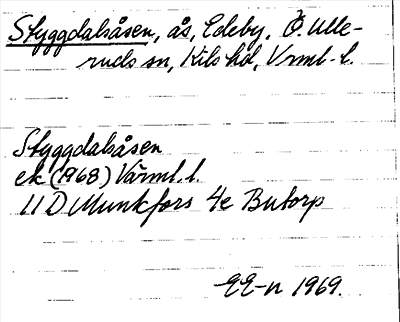 Styggdalsåsen, ås, Edeby, Ö. Ulle-
ruds sn, Kils hd, Vrml. l.
Styggdalsåsen
ek (1968) Värml. l.
11 D Munkfors 4e Butorp
EE-n 1969.